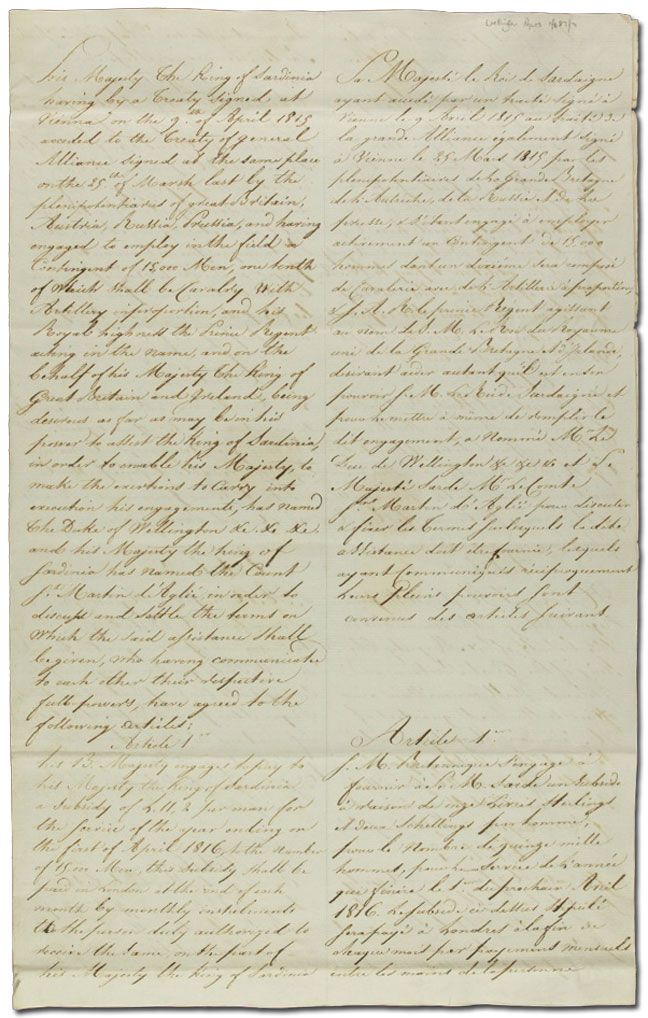 his Majesty The King of Sardinia
having by a Treaty signed, at
Vienna on the 9th of April 1815
acceded to the Treaty of general
Alliance signed at the same place
on the 25th of Marsh last by the
plenipotentiaries of great Britain,
Austria, Russia, Prussia, and having
engaged to employ in the field a
Contingent of 15,000 Men, one tenth
of Which shall be Cavalry With
Artillery in proportion, and his
Royal highness the Prince Regent
acting in the name, and on the
behalf of his Majesty the King of
Great Britain and Ireland, being
desirous as far as may be in his
power to assist the King of Sardinia,
in order to enable his Majesty, to
make the exertions to Carry into
execution his engagements, has named
the Duke of Wellington &c. &c. &c.
and his Majesty the king of
Sardinia has named the Count
St. Martin d'Aglie, in order to
discuss and settle the terms on
Which the said assistance shall
be given, Who having communicated
to each other their respective
full powers, have agreed to the
following articles:
Article 1st
his B. Majesty engages to pay to
his Majesty the King of Sardinia
a Subsidy of L. 11, 2 per man for
the service of the year ending on
the first of April 1816, to the number
of 15,000 Men, this Subsidy shall be
paid in London at the end of each
month by monthly instalments
to the person duly authorized to
receive the same, on the part of
his Majesty the King of Sardinia
Sa Majesté le Roi de Sardaigne
ayant accédé par un traité signé à
Vienne le 9 Avril 1815 au traité de
la grande Alliance également signé
à Vienne le 25 Mars 1815 par les
plenipotentiaires de la Grande Bretagne
de l'Autriche, de la Russie et de la
prusse, & s'étant engagé à employer
activement un Contingent de 15,000
hommes dont un dixième sera composé
de Cavalerie avec de l'Artillerie à proportion,
& S. A. R. le prince Régent agissant
au nom de S. M. Le Roi du Royaume
uni de la Grande Bretagne et d'Irlande,
désirant aider autant qu'il est en son
pouvoir S. M. Le Roi de Sardaigne et
pour le mettre à même de remplir le
dit engagement, a Nommé Mr. Le
Duc de Wellington &c &c &c et Sa
Majesté Sarde Mr. Le Comte
St. Martin d'Aglié pour discuter
& fixer les termes sur lesquels la dite
assistance doit être fournie, lesquels
ayant Communiqués réciproquement
Leurs Pleins pouvoirs sont
convenus des articles suivant
Article 1er
S. M. Britannique s'engage à
fournir à S. M. Sarde un Subside
à raison de onze Livres Sterlings
et deux Schellings par homme,
pour le Nombre de quinze mille
hommes, pour le Service de L'année
que finira le 1er du prochain Avril
1816. Le subside ci dessus stipulé
sera payé à Londres à la fin de
chaque mois par payemens mensuels
entre les mains de la personne